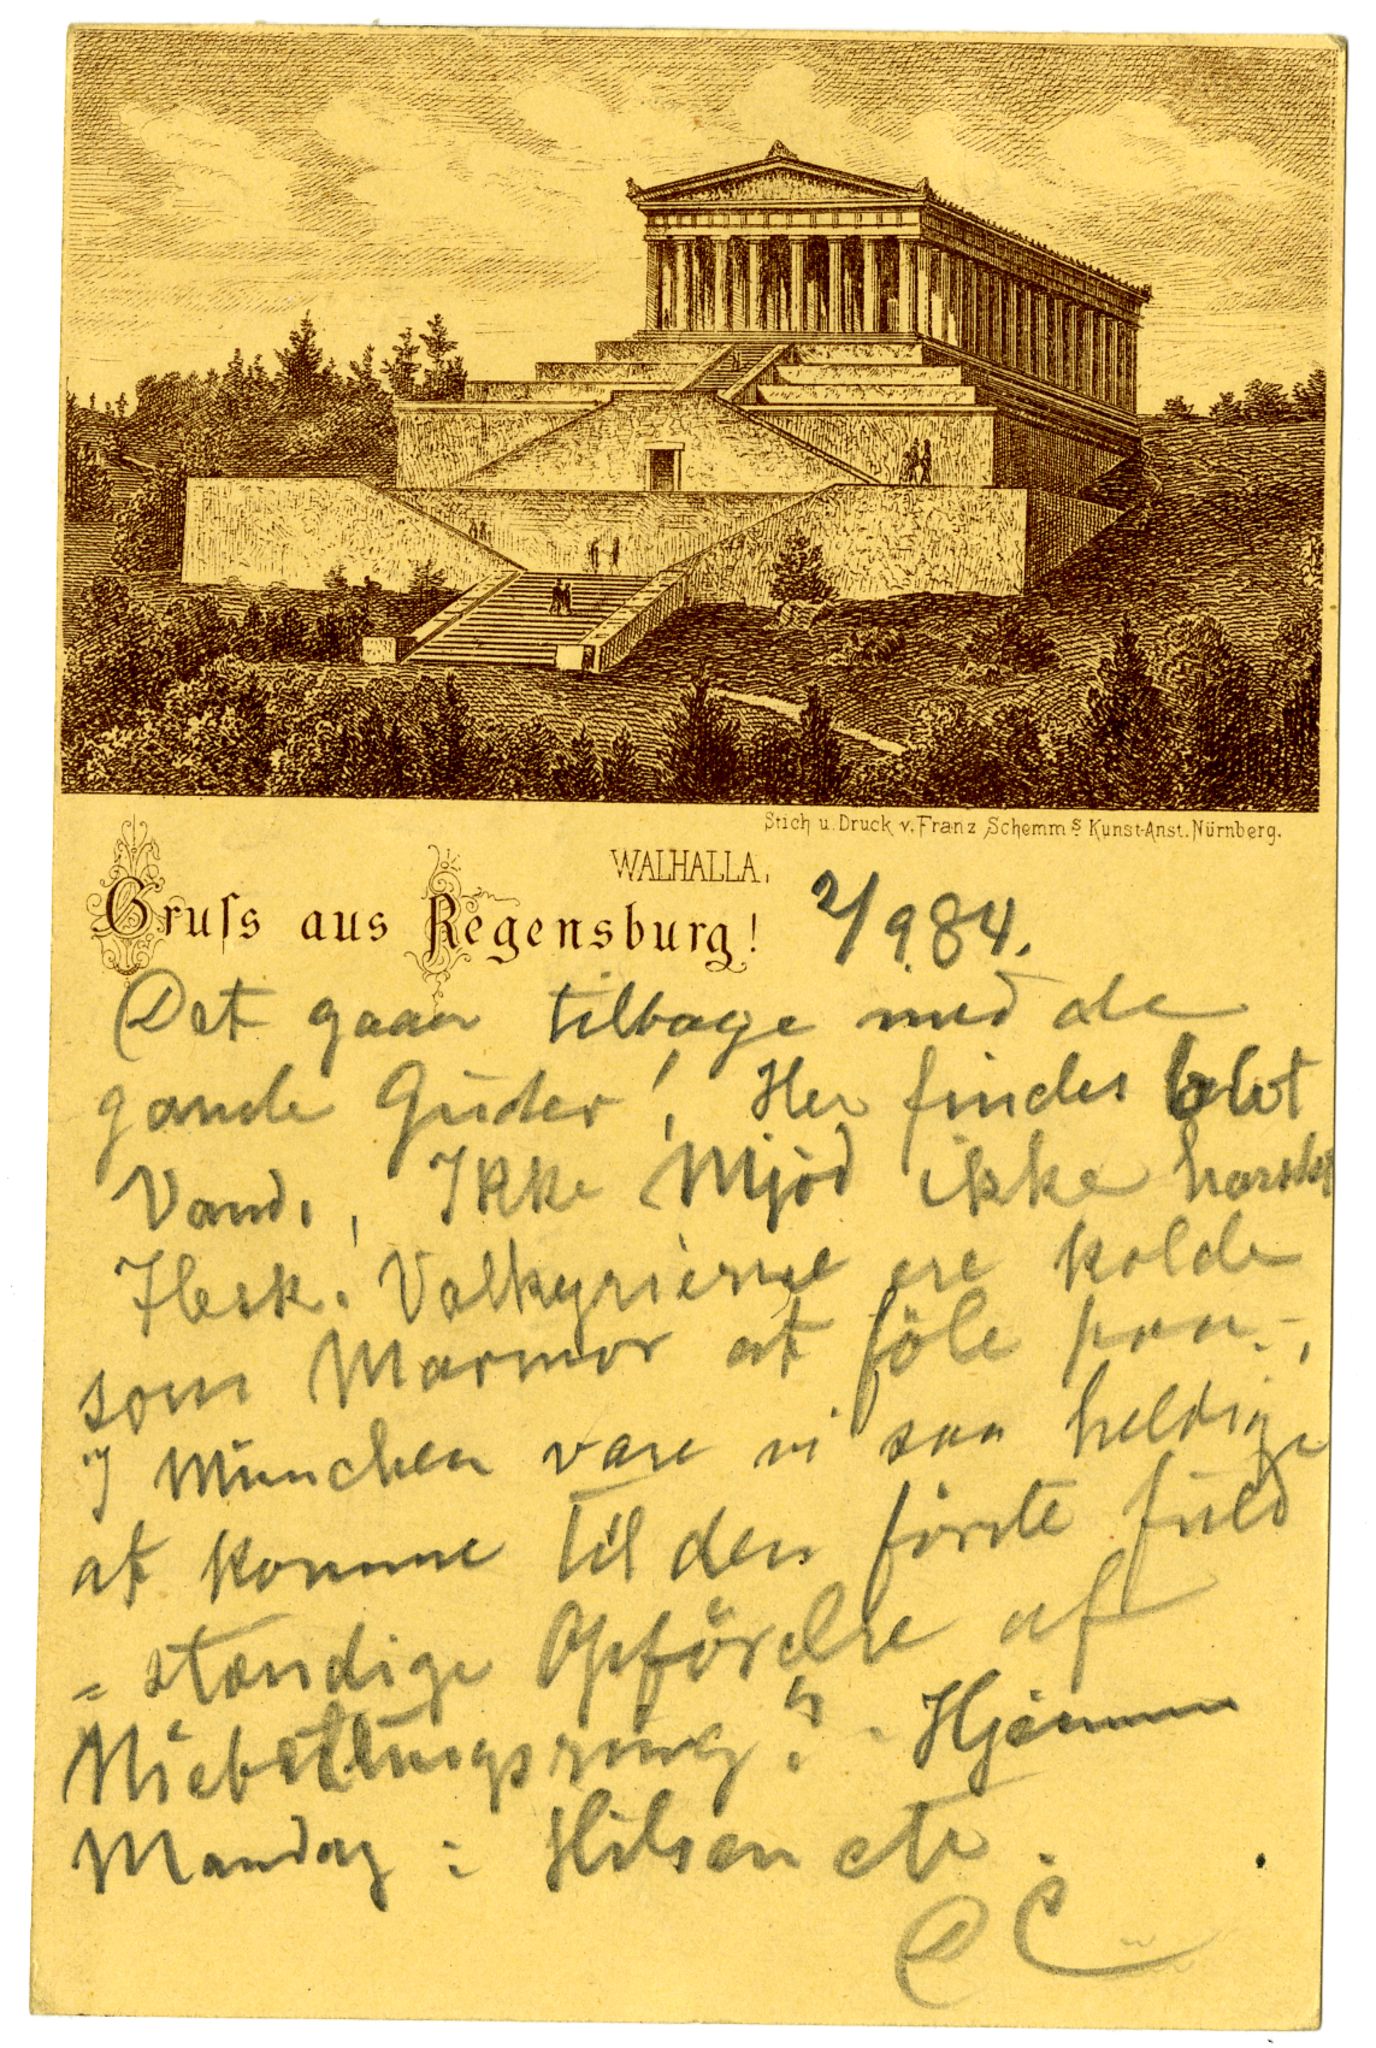 Stich u. Druck v. Franz Schemm's Kunst-Anst. Nürnberg.
WALHALLA.
Gruſs aus Regensburg!
2/9.84.
Det gaar tilbage med de
gamle Guder! Her findes blot
Vand, Ikke Mjöd ikke
Flesk. Valkyrierne ere kolde
som Marmor at föle paa.-,
I München vare vi saa heldige
at komme til den förste fuld
=stændige Opförelse af
Niebelungsring". Hjemme
Mandag: Hilsen etc.